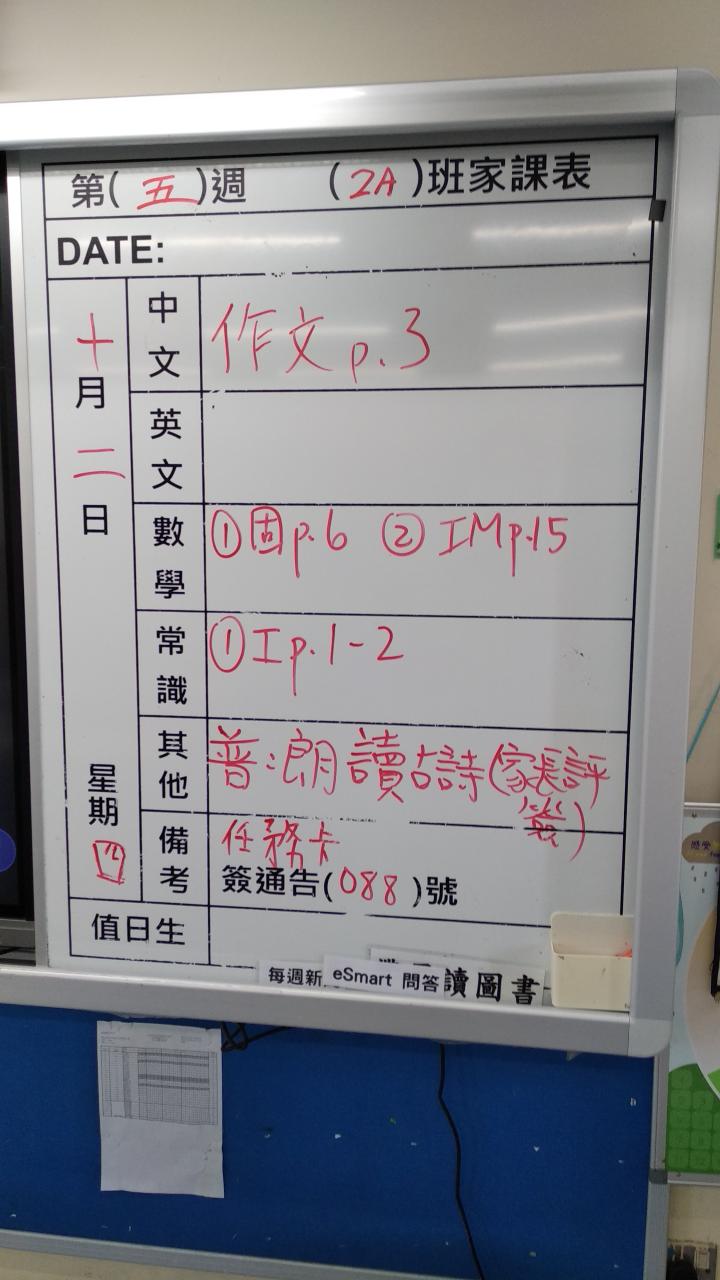 第(五)週 (2A)班家課表
DATE:
十月二日 星期四
中文 作文 p.3
英文
數學 ①固p.6 ②IMp.15
常識 ①Ip.1-2
其他 普:朗讀古詩(家長評簽)
備考 任務卡
簽通告(088)號
值日生
每週新 eSmart 問答 讀圖書